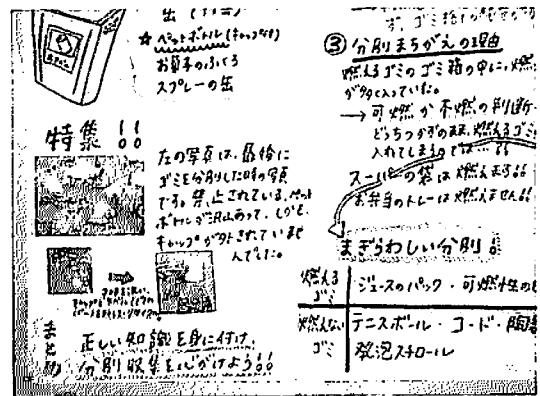 缶
☆ ペットボトル(キャップなし)
お菓子のふくろ
スプレーの缶
特集!!
左の写真は、最後に
ゴミを分別した時の写真
です。禁止されている、ペット
ボトルが沢山あって、しかも、
キャップが外されていませ
んでした。
まとめ
正しい知識を身に付け、
分別収集を心がけよう!!
③ 分別まちがえの理由
燃えるゴミのゴミ箱の中に、燃
が多く入っていた。
→ 可燃か不燃の判断
どっちつかずのまま、燃えるゴミ
入れてしまうのでは…!!
スーパーの袋は燃えます!!
お弁当のトレーは燃えません!!
まぎらわしい分別!
燃えるゴミ
ジュースのパック・可燃性の
燃えないゴミ
テニスボール・コード・陶
発泡スチロール